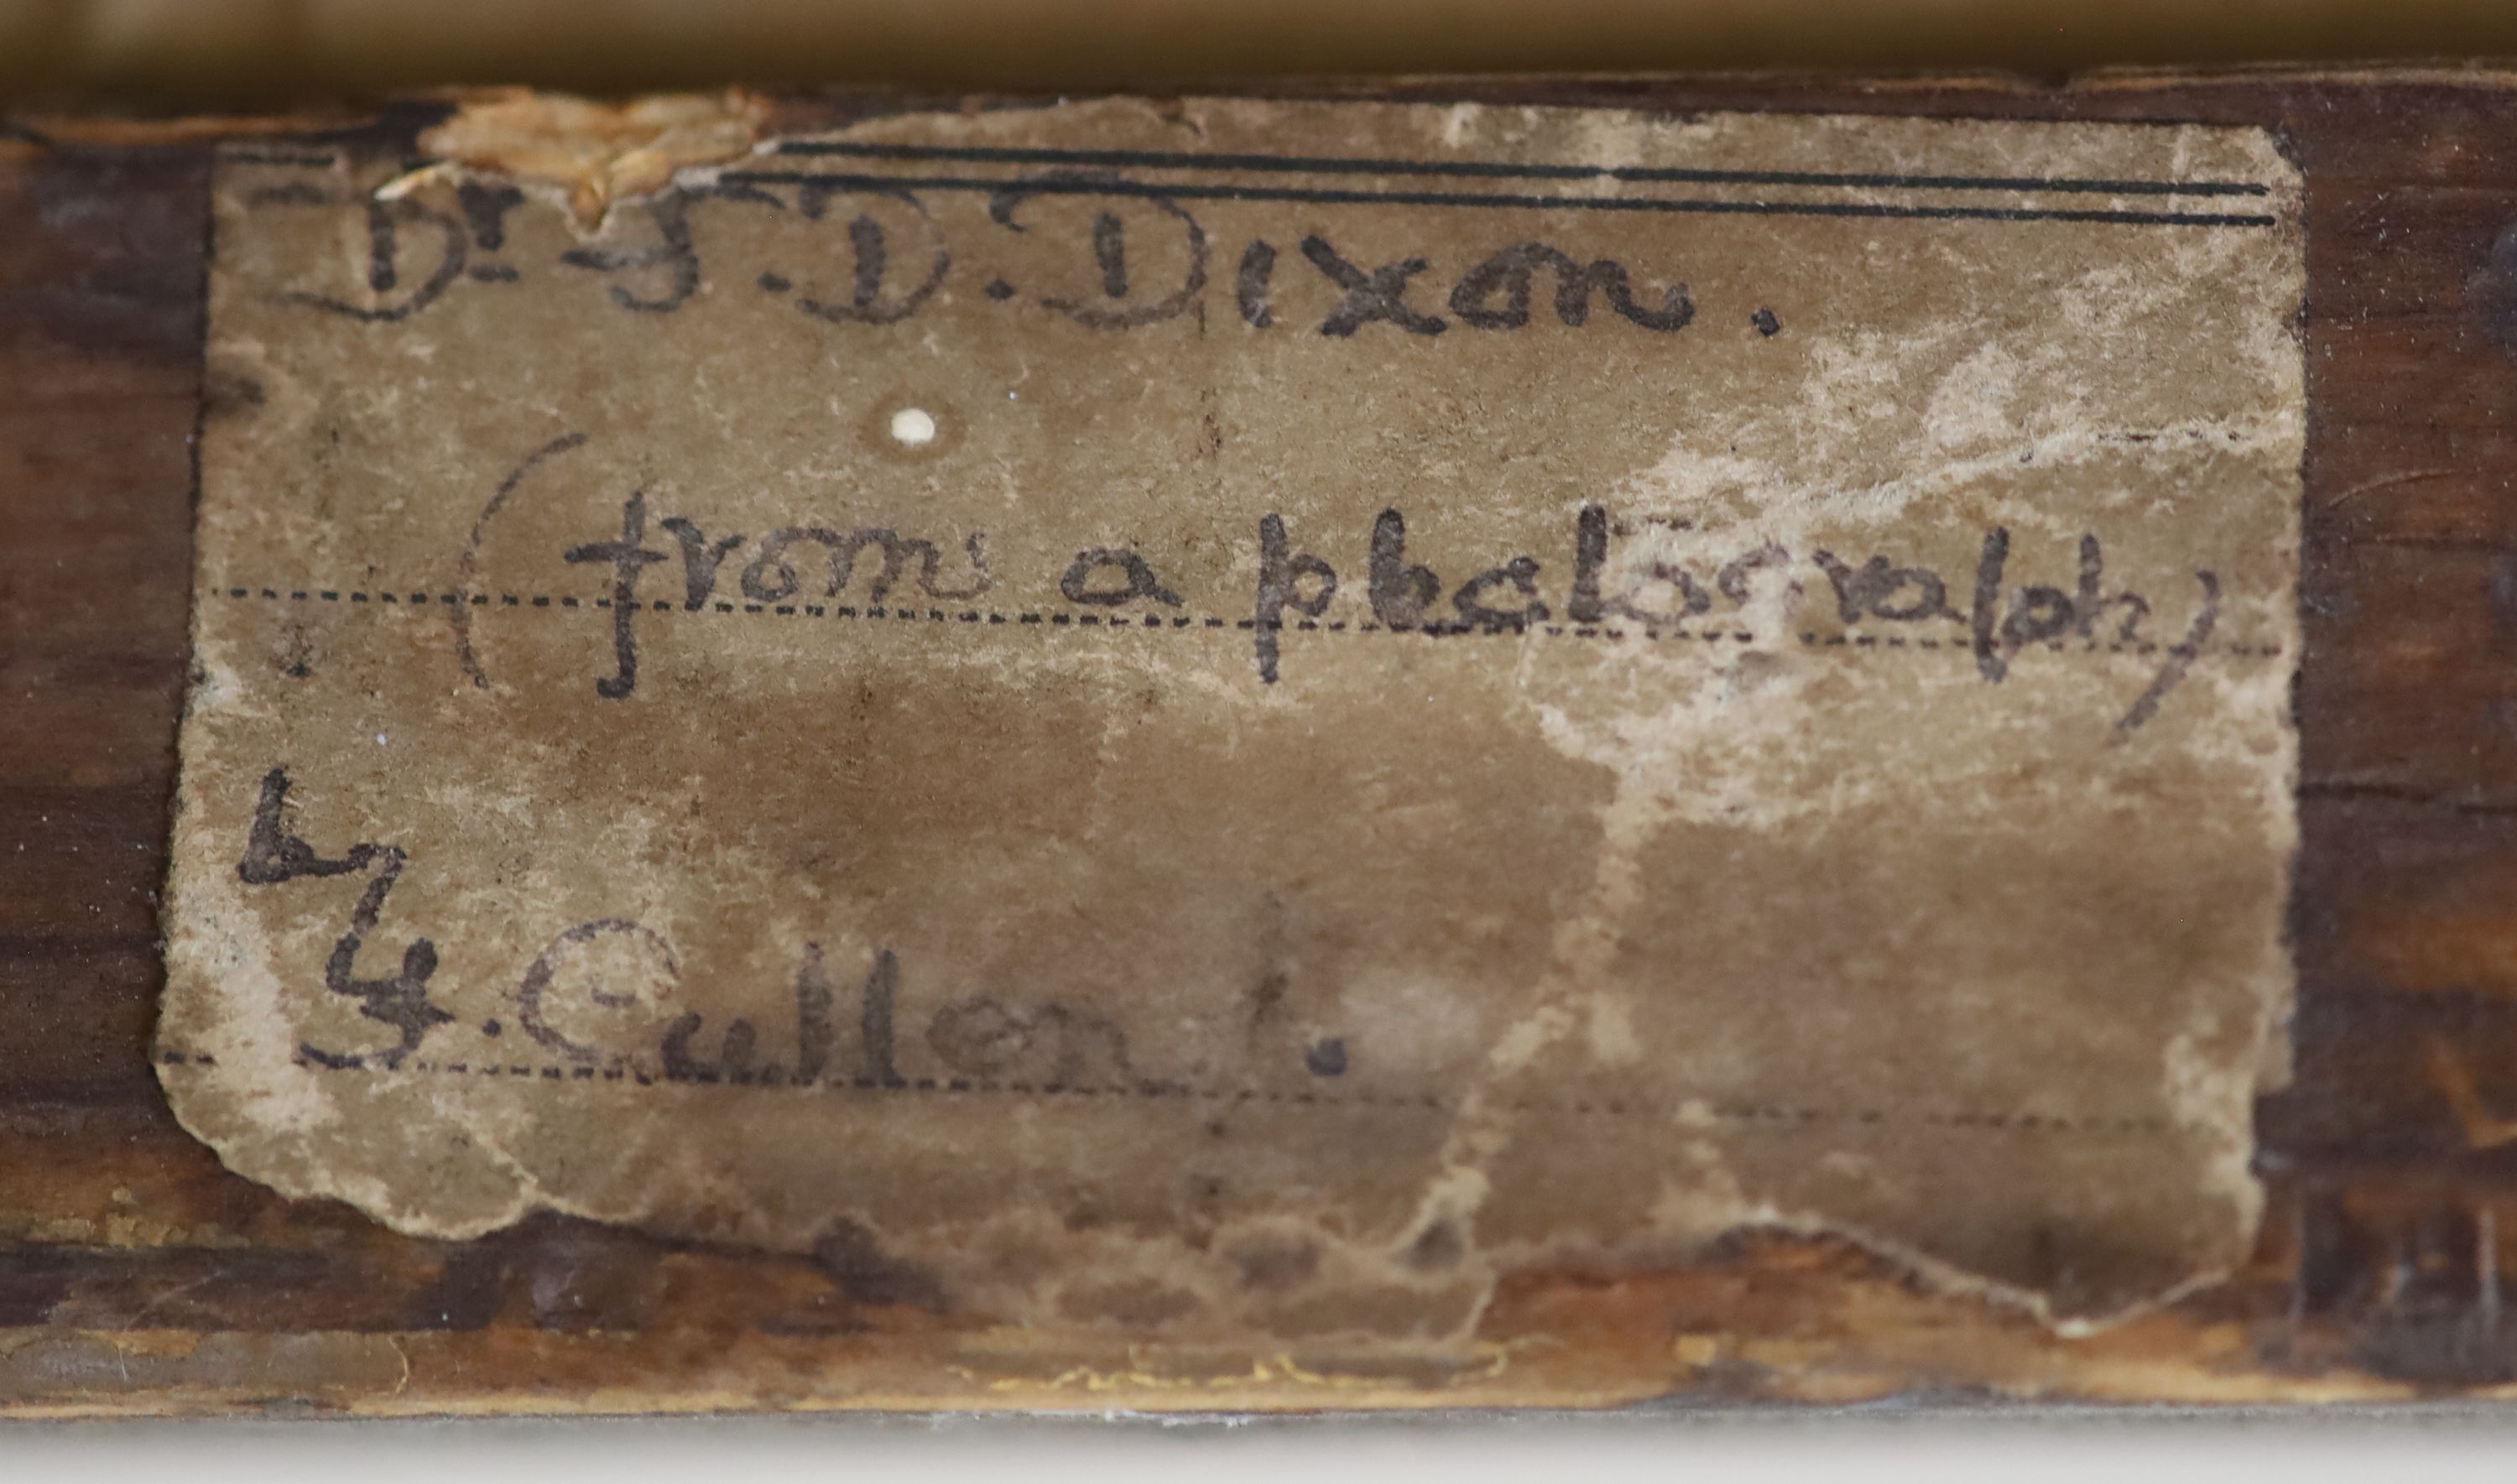 Dr. J. D. Dixon.
(from a photograph)
by
J. Cullen.